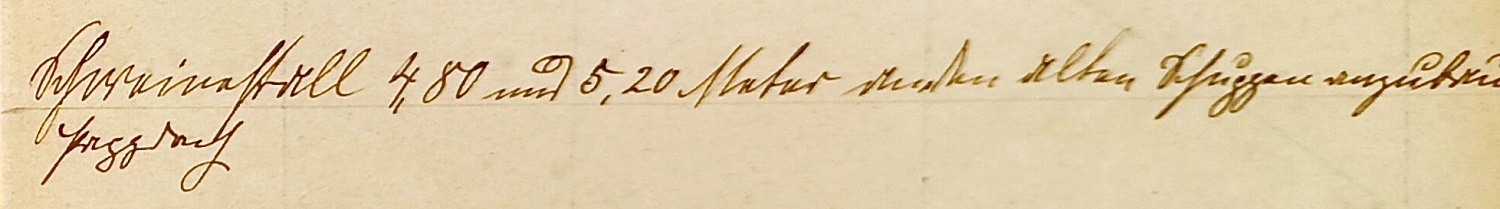 Schweinestall 4,80 und 5,20 Meter an den alten Schuppen anzubau
Pappdach